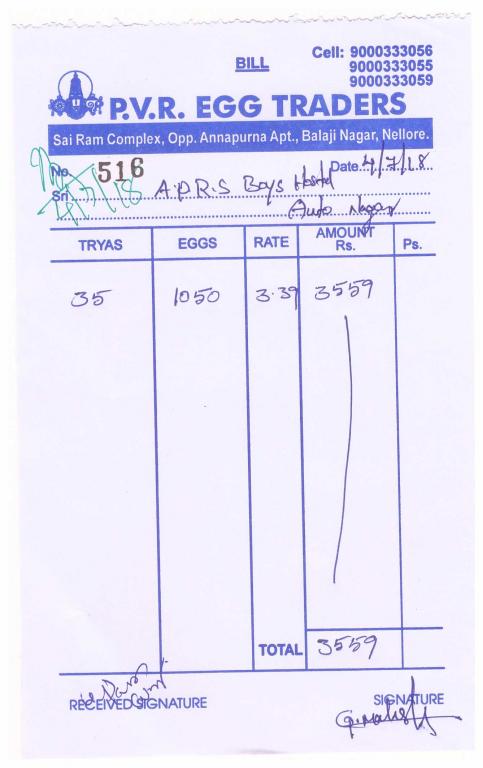 BILL
Cell: 9000333056
9000333055
9000333059
P.V.R. EGG TRADERS
Sai Ram Complex, Opp. Annapurna Apt., Balaji Nagar, Nellore.
No. 516 Date 4/7/18
Sri A.P.R.S Boys Hostel
Auto Nagar
4/7/18
TRYAS EGGS RATE AMOUNT Rs. Ps.
35 1050 3.39 3559
TOTAL 3559
RECEIVED SIGNATURE SIGNATURE